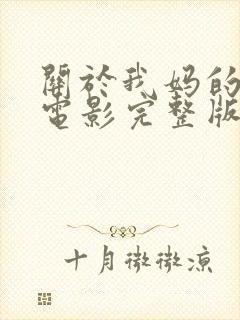 關於我妈的
電影完整版
十月微微凉